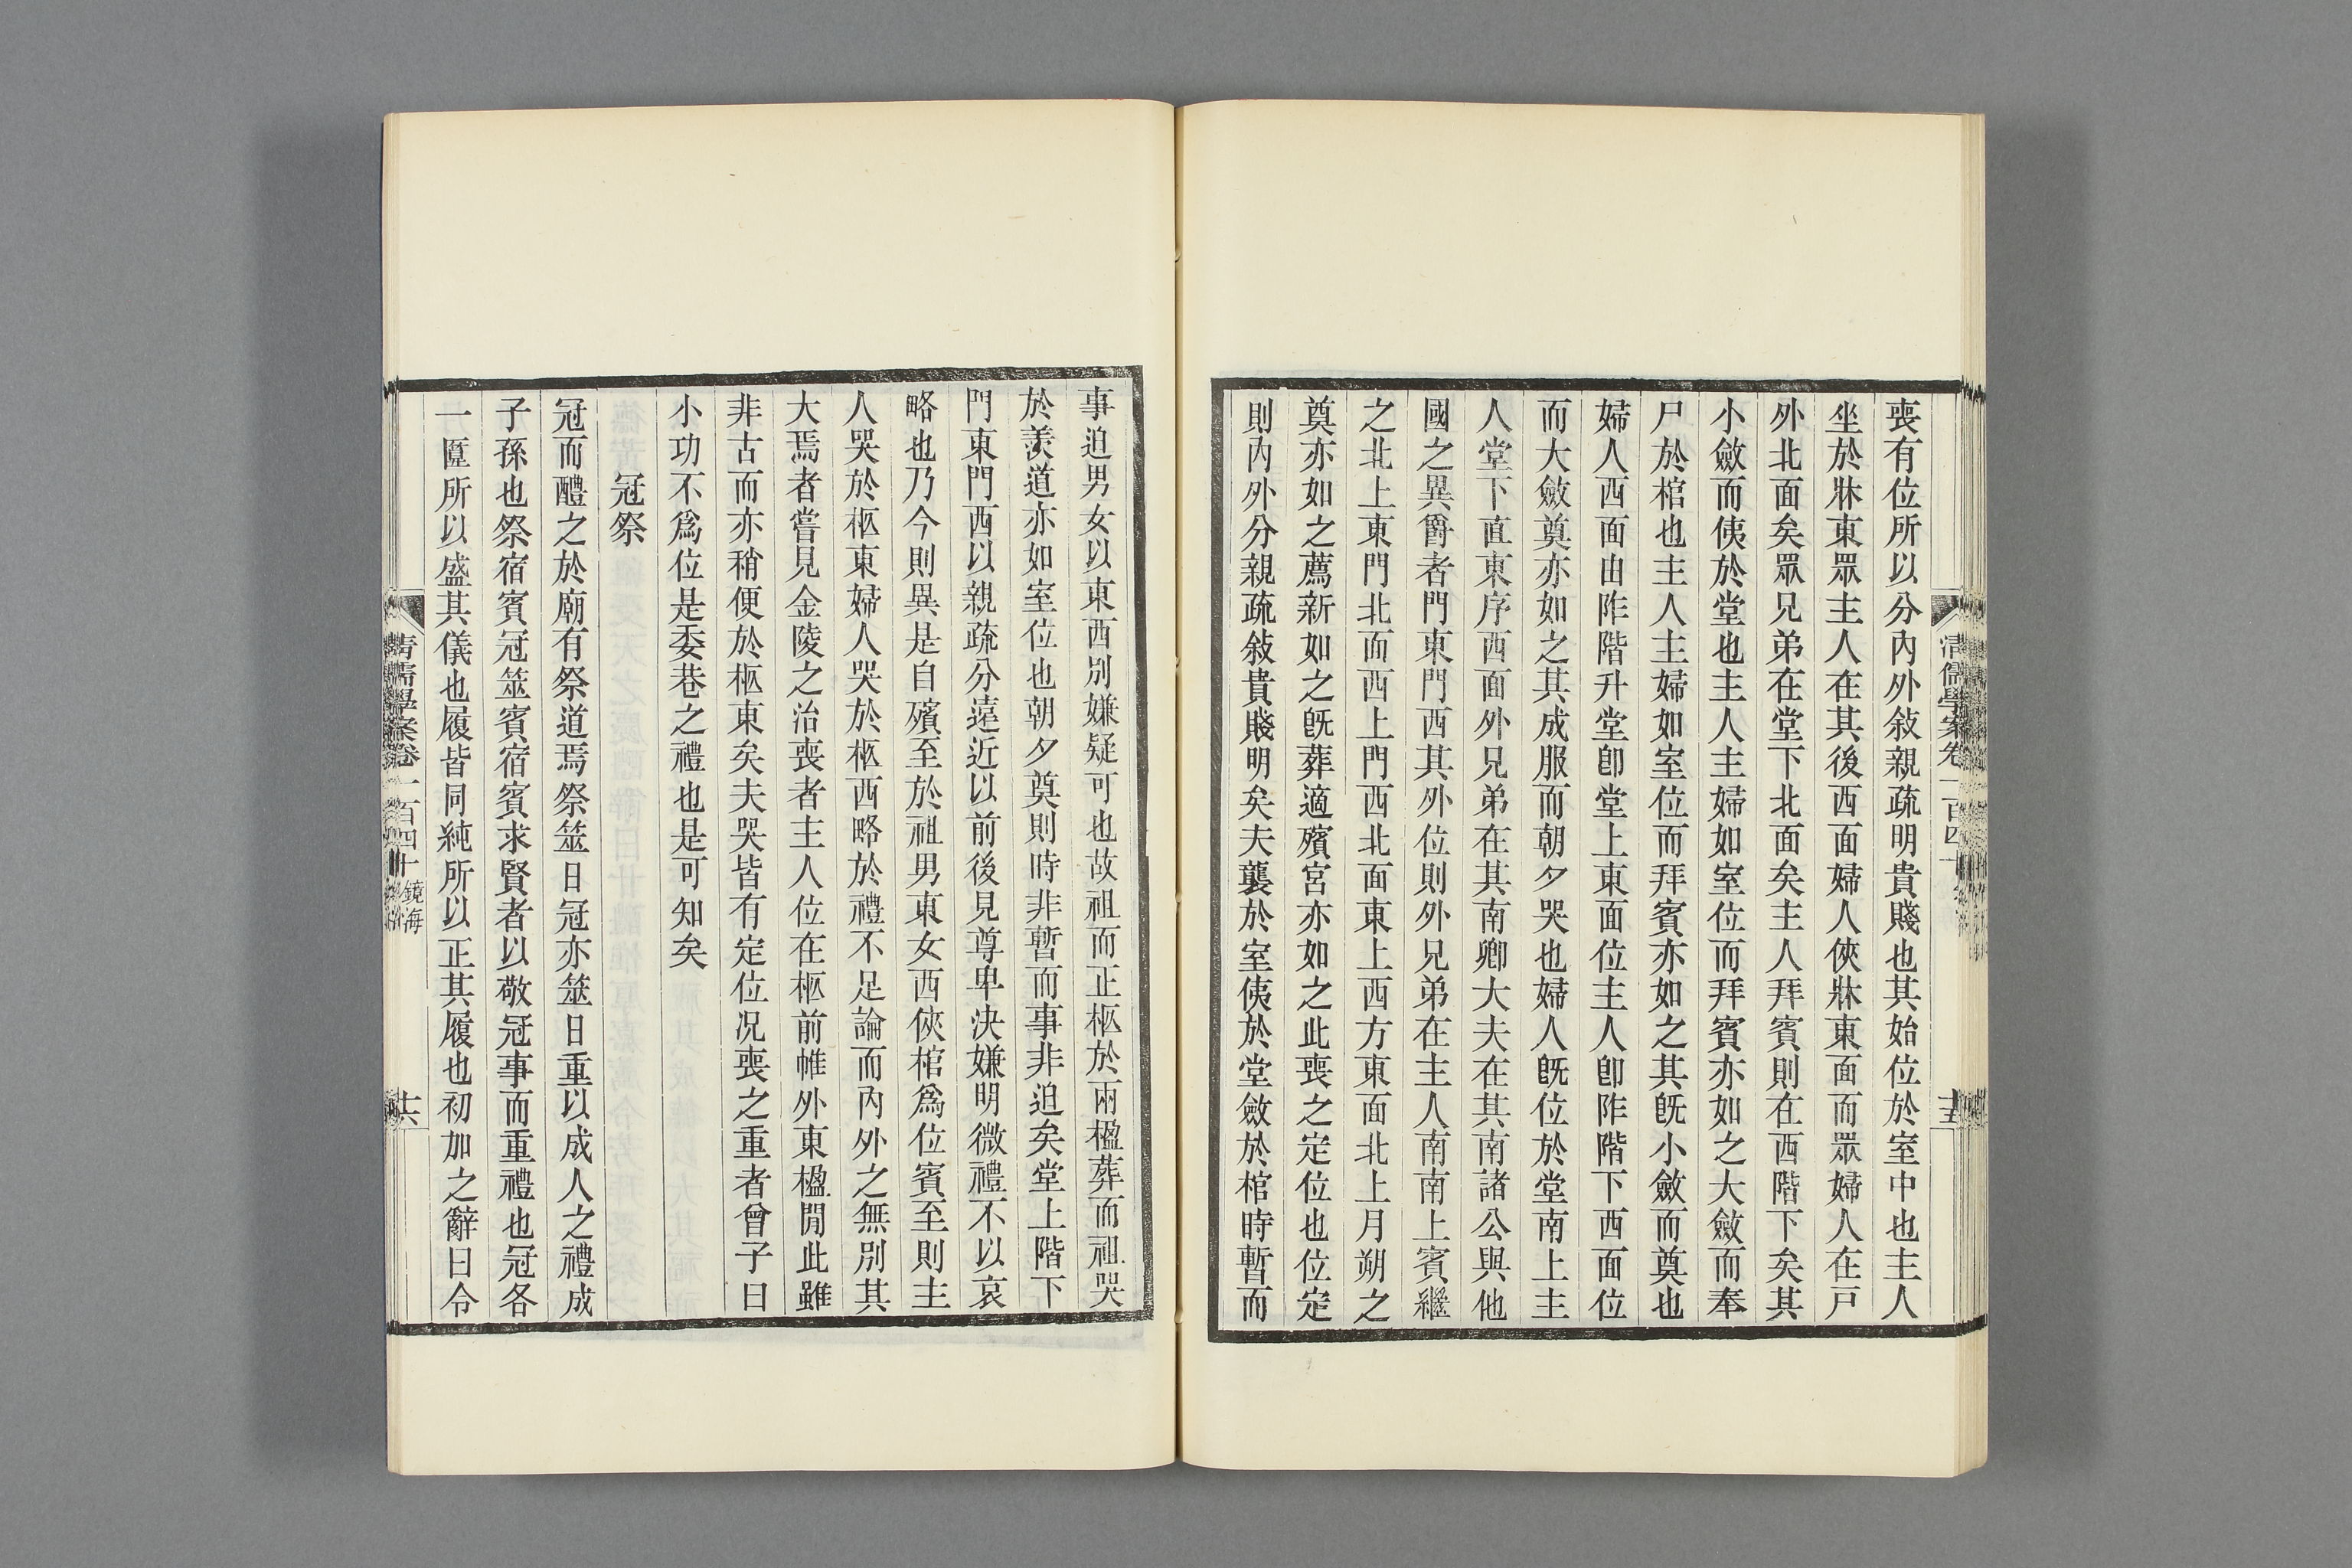 喪有位所以分內外敍親疏明貴賤也其始位於室中也主人
坐於牀東眾主人在其後西面婦人俠牀東面而眾婦人在戸
外北面矣眾兄弟在堂下北面矣主人拜賓則在西階下矣其
小斂而侇於堂也主人主婦如室位而拜賓亦如之大斂而奉
尸於棺也主人主婦如室位而拜賓亦如之其旣小斂而奠也
婦人西面由阼階升堂卽堂上東面位主人卽阼階下西面位
而大斂奠亦如之其成服而朝夕哭也婦人旣位於堂南上主
人堂下直東序西面外兄弟在其南卿大夫在其南諸公與他
國之異爵者門東門西其外位則外兄弟在主人南南上賓繼
之北上東門北面西上門西北面東上西方東面北上月朔之
奠亦如之薦新如之旣葬適殯宮亦如之此喪之定位也位定
則內外分親疏敍貴賤明矣夫襲於室侇於堂斂於棺時暫而
清儒學案卷一百四十
十五
事迫男女以東西別嫌疑可也故祖而正柩於兩楹葬而祖哭
於羨道亦如室位也朝夕奠則時非暫而事非迫矣堂上階下
門東門西以親疏分遠近以前後見尊卑決嫌明微禮不以哀
略也乃今則異是自殯至於祖男東女西俠棺爲位賓至則主
人哭於柩東婦人哭於柩西略於禮不足論而內外之無別其
大焉者嘗見金陵之治喪者主人位在柩前帷外東楹閒此雖
非古而亦稍便於柩東矣夫哭皆有定位況喪之重者曾子曰
小功不爲位是委巷之禮也是可知矣
冠祭
冠而醴之於廟有祭道焉祭筮日冠亦筮日重以成人之禮成
子孫也祭宿賓冠筮賓宿賓求賢者以敬冠事而重禮也冠各
一匴所以盛其儀也履皆同純所以正其履也初加之辭曰令
清儒學案卷一百四十 鏡海
十六